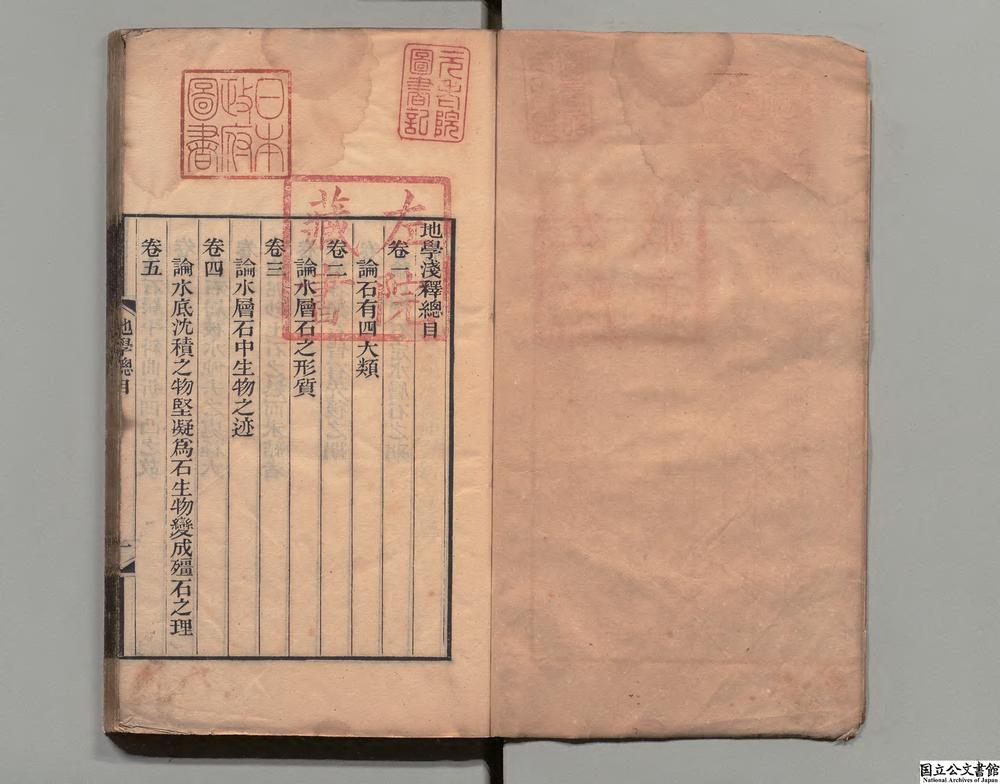 地學淺釋總目
卷一
論石有四大類
卷二
論水層石之形質
卷三
論水層石中生物之迹
卷四
論水底沈積之物堅凝爲石生物變成殭石之理
卷五
地學總目
一
元老院
圖書記
日本
政府
圖書
左院
藏書
国立公文書館
National Archives of Japan